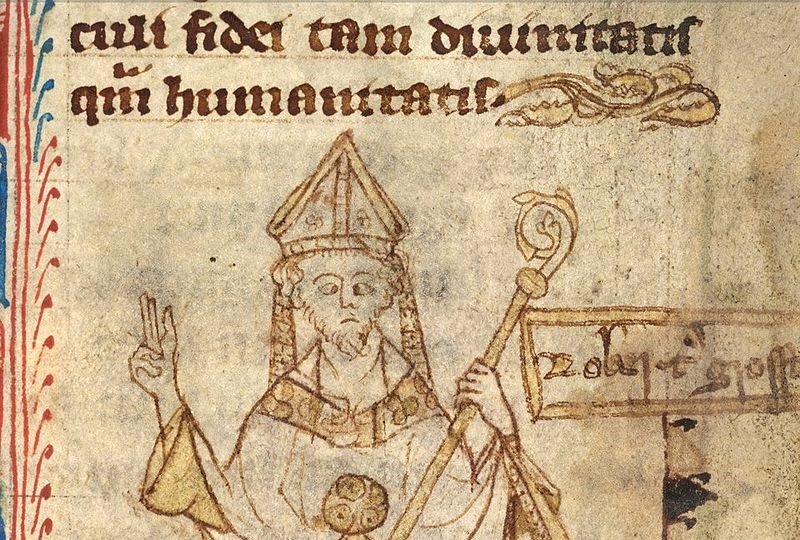 culi fidei tam diuinitatis
qm̄ humanitatis.
Robert' grosst